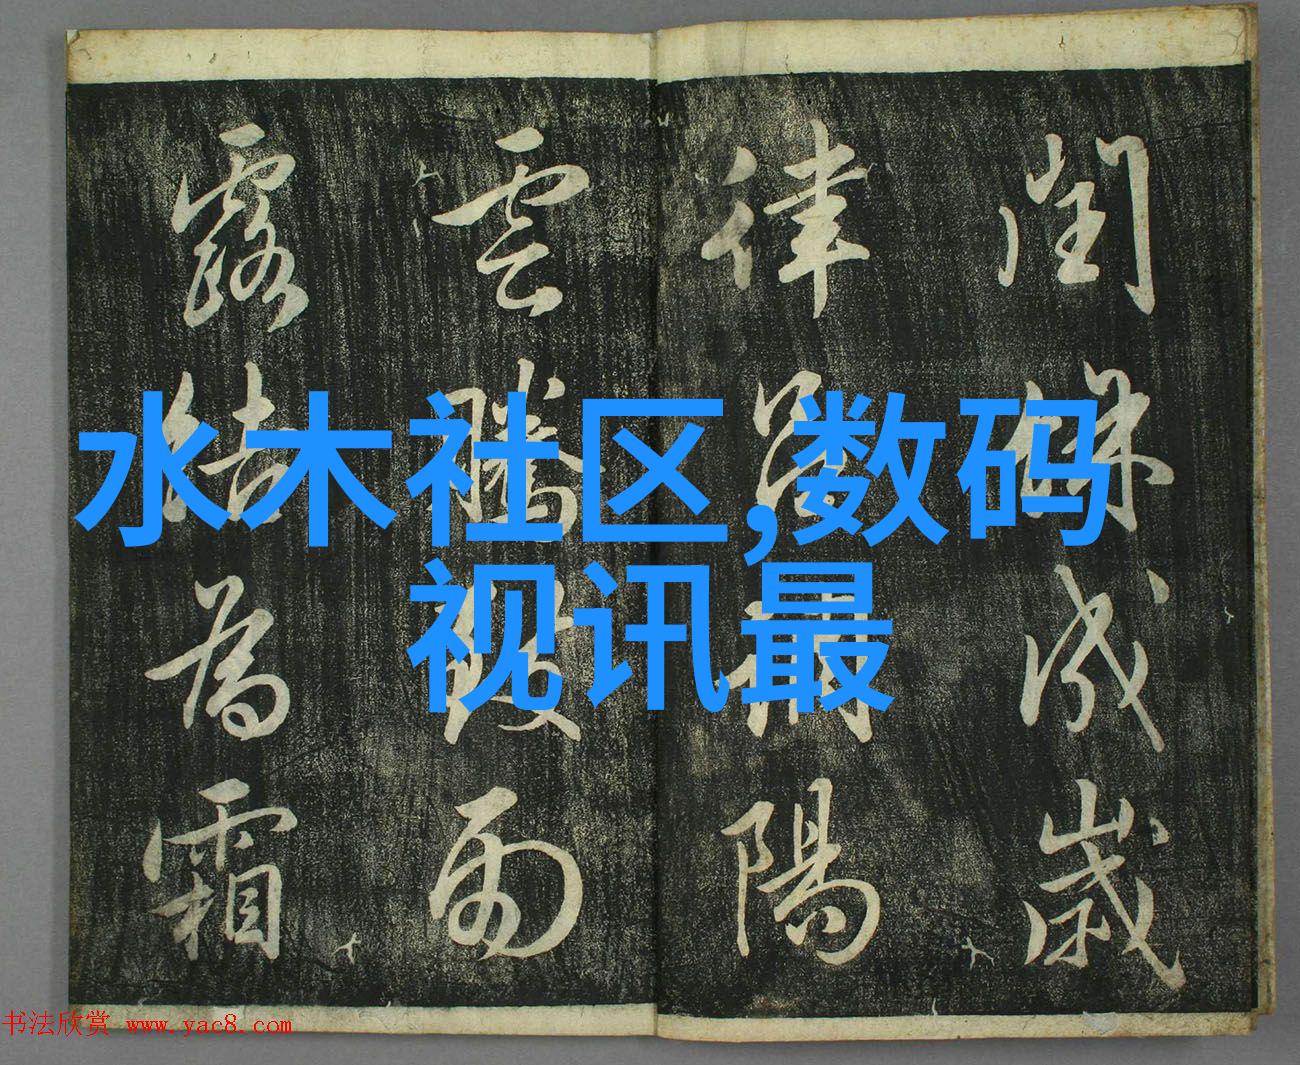 閏餘成歲
律呂調陽
雲騰致雨
露結為霜
水木社区,数码
视讯最
书法欣赏 www.yac8.com